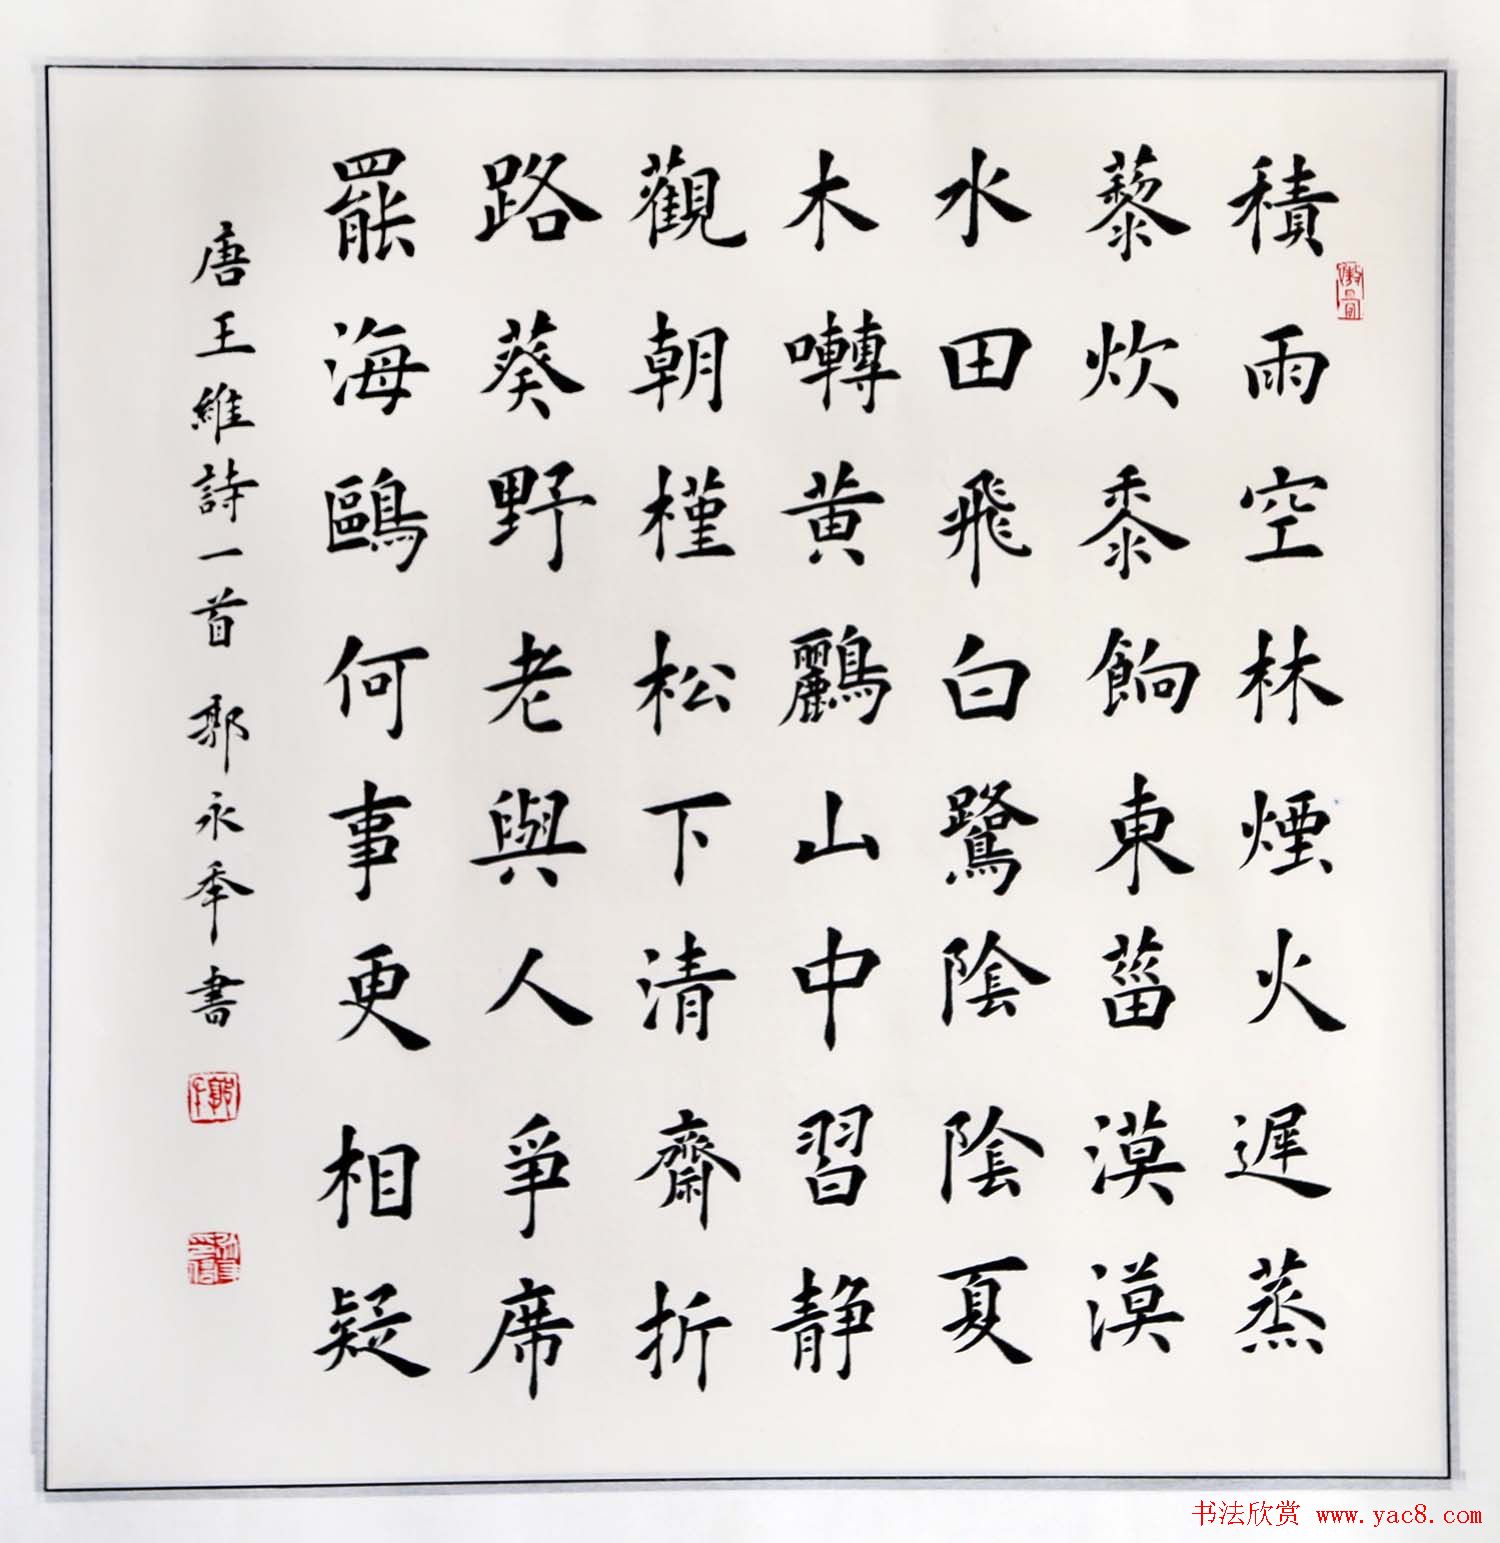 積雨空林煙火遲蒸
藜炊黍餉東菑漠漠
水田飛白鷺陰陰夏
木囀黄鸝山中習静
觀朝槿松下清齋折
路葵野老與人爭席
罷海鷗何事更相疑
唐王維詩一首 郭永年書
书法欣赏 www.yac8.com